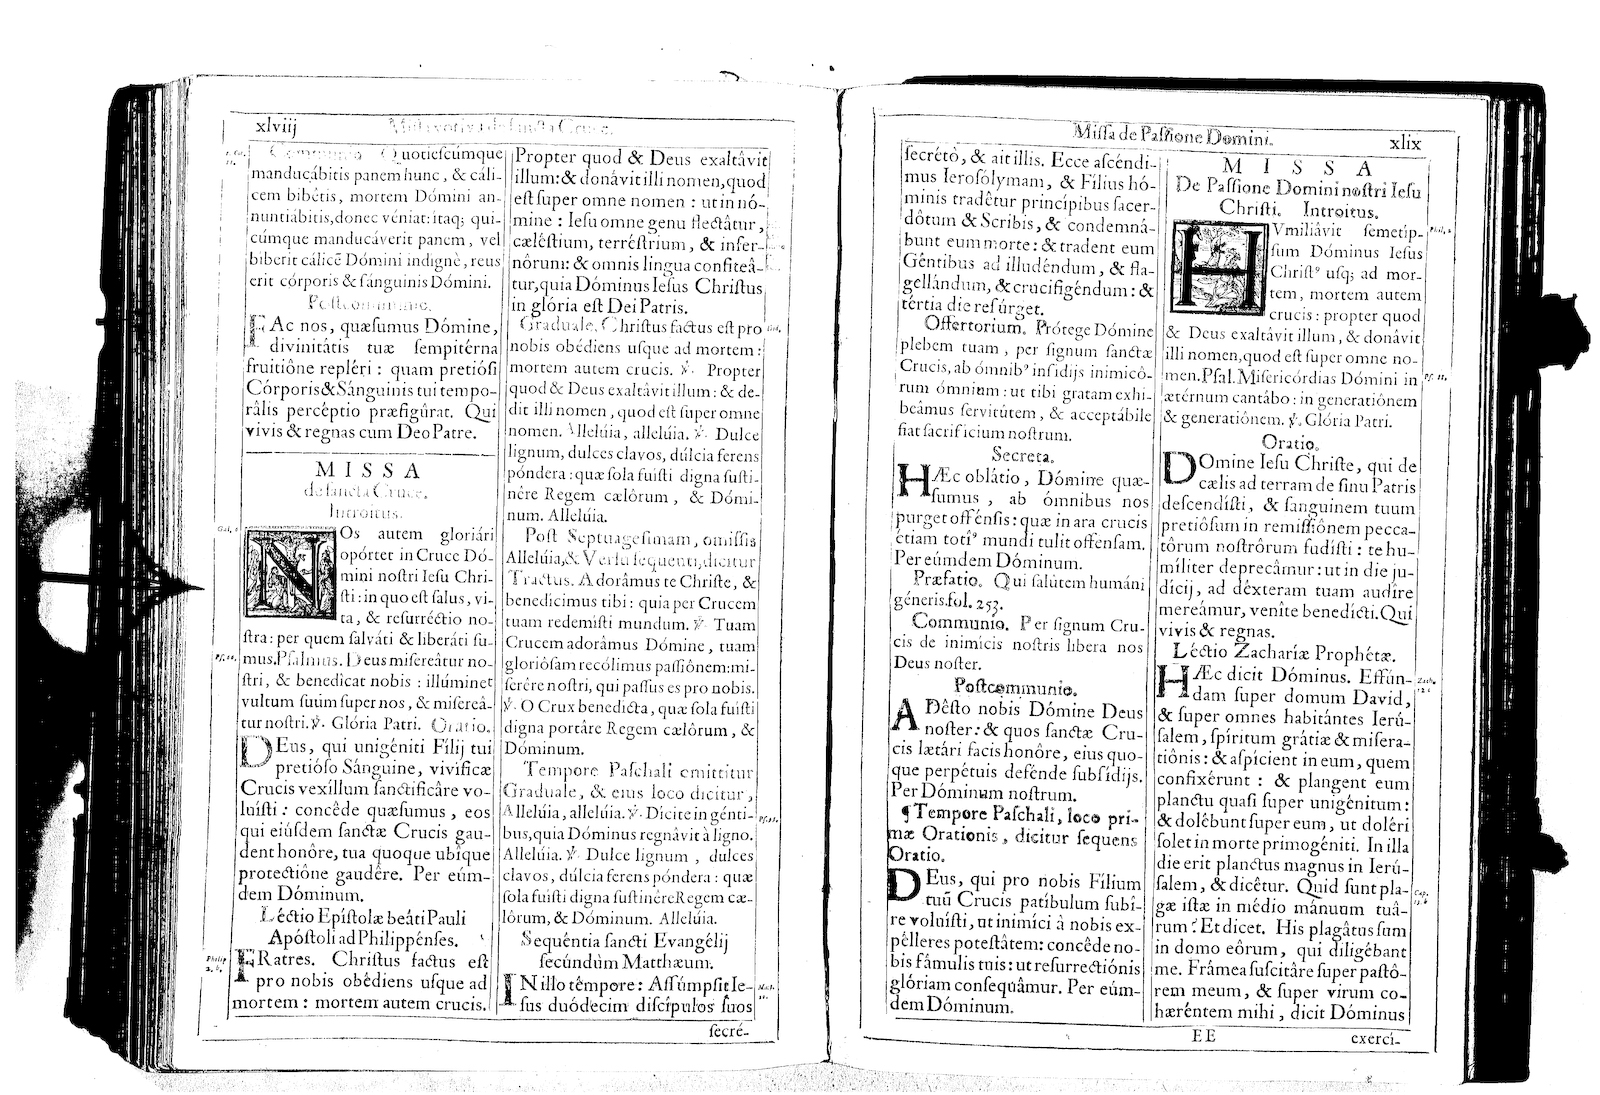 xlviij
Missa votiva de sancta Cruce.
Communio Quotieſcúmque
manducábitis panem hunc, & cáli-
cem bibétis, mortem Dómini an-
nuntiábitis, donec véniat: itaq; qui-
cúmque manducáverit panem, vel
biberit cálicẽ Dómini indignè, reus
erit córporis & ſánguinis Dómini.
Poſtcommunio.
FAc nos, quæſumus Dómine,
divinitátis tuæ ſempitérna
fruitiône repléri: quam pretióſi
Córporis & Sánguinis tui tempo-
râlis percéptio præfigûrat. Qui
vivis & regnas cum Deo Patre.
MISSA
de ſancta Cruce.
Introitus.
Gal. 6
NOs autem gloriári
opórtet in Cruce Dó-
mini noſtri Ieſu Chri-
ſti: in quo eſt ſalus, vi-
ta, & reſurréctio no-
ſtra: per quem ſalváti & liberáti ſu-
mus. Pſalmus. Deus miſereâtur no-
ſtri, & benedicat nobis: illúminet
vultum ſuum ſuper nos, & miſereâ-
tur noſtri. ℣. Glória Patri. Oratio.
DEus, qui unigéniti Fílij tui
pretióſo Sánguine, vivíficæ
Crucis vexíllum ſanctificâre vo-
luíſti: concêde quæſumus, eos
qui eiúſdem ſanctæ Crucis gau-
dent honôre, tua quoque ubíque
protectiône gaudêre. Per eúm-
dem Dóminum.
Léctio Epíſtolæ beáti Pauli
Apóſtoli ad Philippénſes.
Philip.
2. b.
FRatres. Chriſtus factus eſt
pro nobis obédiens uſque ad
mortem: mortem autem crucis.
Propter quod & Deus exaltâvit
illum: & donâvit illi nomen, quod
eſt ſuper omne nomen: ut in nó-
mine: Ieſu omne genu flectâtur,
cæléſtium, terréſtrium, & infer-
nôrum: & omnis lingua confiteâ-
tur, quia Dóminus Ieſus Chriſtus
in glória eſt Dei Patris.
Graduale. Chriſtus factus eſt pro
nobis obédiens uſque ad mortem:
mortem autem crucis. ℣. Propter
quod & Deus exaltâvit illum: & de-
dit illi nomen, quod eſt ſuper omne
nomen. Allelúia, allelúia. ℣. Dulce
lignum, dulces clavos, dúlcia ferens
póndera: quæ ſola fuiſti digna ſuſti-
nêre Regem cælôrum, & Dómi-
num. Allelúia.
Poſt Septuageſimam, omiſſis
Allelúia, & Verſu ſequenti, dicitur
Tractus. Adorâmus te Chriſte, &
benedicimus tibi: quia per Crucem
tuam redemiſti mundum. ℣. Tuam
Crucem adorâmus Dómine, tuam
glorióſam recólimus paſſiônem: mi-
ſerêre noſtri, qui paſſus es pro nobis.
℣. O Crux benedícta, quæ ſola fuiſti
digna portâre Regem cælôrum, &
Dóminum.
Tempore Paſchali omittitur
Graduale, & eius loco dicitur,
Allelúia, allelúia. ℣. Dicite in génti-
bus, quia Dóminus regnâvit à ligno.
Allelúia. ℣. Dulce lignum, dulces
clavos, dúlcia ferens póndera: quæ
ſola fuiſti digna ſuſtinêre Regem cæ-
lôrum, & Dóminum. Allelúia.
Sequéntia ſancti Evangélij
ſecúndùm Matthæum.
IN illo témpore: Aſſúmpſit Ie-
ſus duódecim diſcípulos ſuos
ſecré-
Miſſa de Paſſione Domini.
xlix
ſecrétò, & ait illis. Ecce aſcéndi-
mus Ieroſólymam, & Fílius hó-
minis tradêtur princípibus ſacer-
dôtum & Scribis, & condemná-
bunt eum morte: & tradent eum
Géntibus ad illudéndum, & fla-
gellándum, & crucifigéndum: &
tértia die reſúrget.
Offertorium. Prótege Dómine
plebem tuam, per ſignum ſanctæ
Crucis, ab ómnibꝰ inſídijs inimicô-
rum ómnium: ut tibi gratam exhi-
beâmus ſervitútem, & acceptábile
fiat ſacrificium noſtrum.
Secreta.
HÆc oblátio, Dómine quæ-
ſumus, ab ómnibus nos
purget offénſis: quæ in ara crucis
étiam totiꝰ mundi tulit offenſam.
Per eúmdem Dóminum.
Præfatio. Qui ſalútem humáni
géneris. fol. 253.
Communio. Per ſignum Cru-
cis de inimícis noſtris libera nos
Deus noſter.
Poſtcommunio.
ADéſto nobis Dómine Deus
noſter: & quos ſanctæ Cru-
cis lætári facis honôre, eius quo-
que perpétuis defénde ſubſídijs.
Per Dóminum noſtrum.
¶ Tempore Paſchali, loco pri-
mæ Orationis, dicitur ſequens
Oratio.
DEus, qui pro nobis Fílium
tuũ Crucis patíbulum ſubí-
re voluíſti, ut inimíci à nobis ex-
pélleres poteſtâtem: concêde no-
bis fâmulis tuis: ut reſurrectiónis
glóriam conſequâmur. Per eúm-
dem Dóminum.
MISSA
De Paſſione Domini noſtri Ieſu
Chriſti. Introitus.
HVmiliâvit ſemetip-
ſum Dóminus Ieſus
Chriſtꝰ uſq; ad mor-
tem, mortem autem
crucis: propter quod
& Deus exaltâvit illum, & donâvit
illi nomen, quod eſt ſuper omne no-
men. Pſal. Miſericórdias Dómini in
ætérnum cantâbo: in generatiónem
& generatiônem. ℣. Glória Patri.
Oratio.
DOmine Ieſu Chriſte, qui de
cælis ad terram de ſinu Patris
deſcendíſti, & ſanguinem tuum
pretióſum in remiſſiônem pecca-
tôrum noſtrôrum fudíſti: te hu-
míliter deprecâmur: ut in die ju-
dícij, ad déxteram tuam audíre
mereâmur, veníte benedícti. Qui
vivis & regnas.
Léctio Zacharíæ Prophétæ.
HÆc dicit Dóminus. Effún-
dam ſuper domum David,
& ſuper omnes habitántes Ierú-
ſalem, ſpíritum grátiæ & miſera-
tiônis: & aſpícient in eum, quem
confixérunt: & plangent eum
planctu quaſi ſuper unigénitum:
& dolêbunt ſuper eum, ut doléri
ſolet in morte primogéniti. In illa
die erit planctus magnus in Ierú-
ſalem, & dicêtur. Quid ſunt pla-
gæ iſtæ in médio mánuum tuâ-
rum? Et dicet. His plagâtus ſum
in domo eôrum, qui diligêbant
me. Frámea ſuſcitâre ſuper paſtô-
rem meum, & ſuper virum co-
hæréntem mihi, dicit Dóminus
EE
exerci-